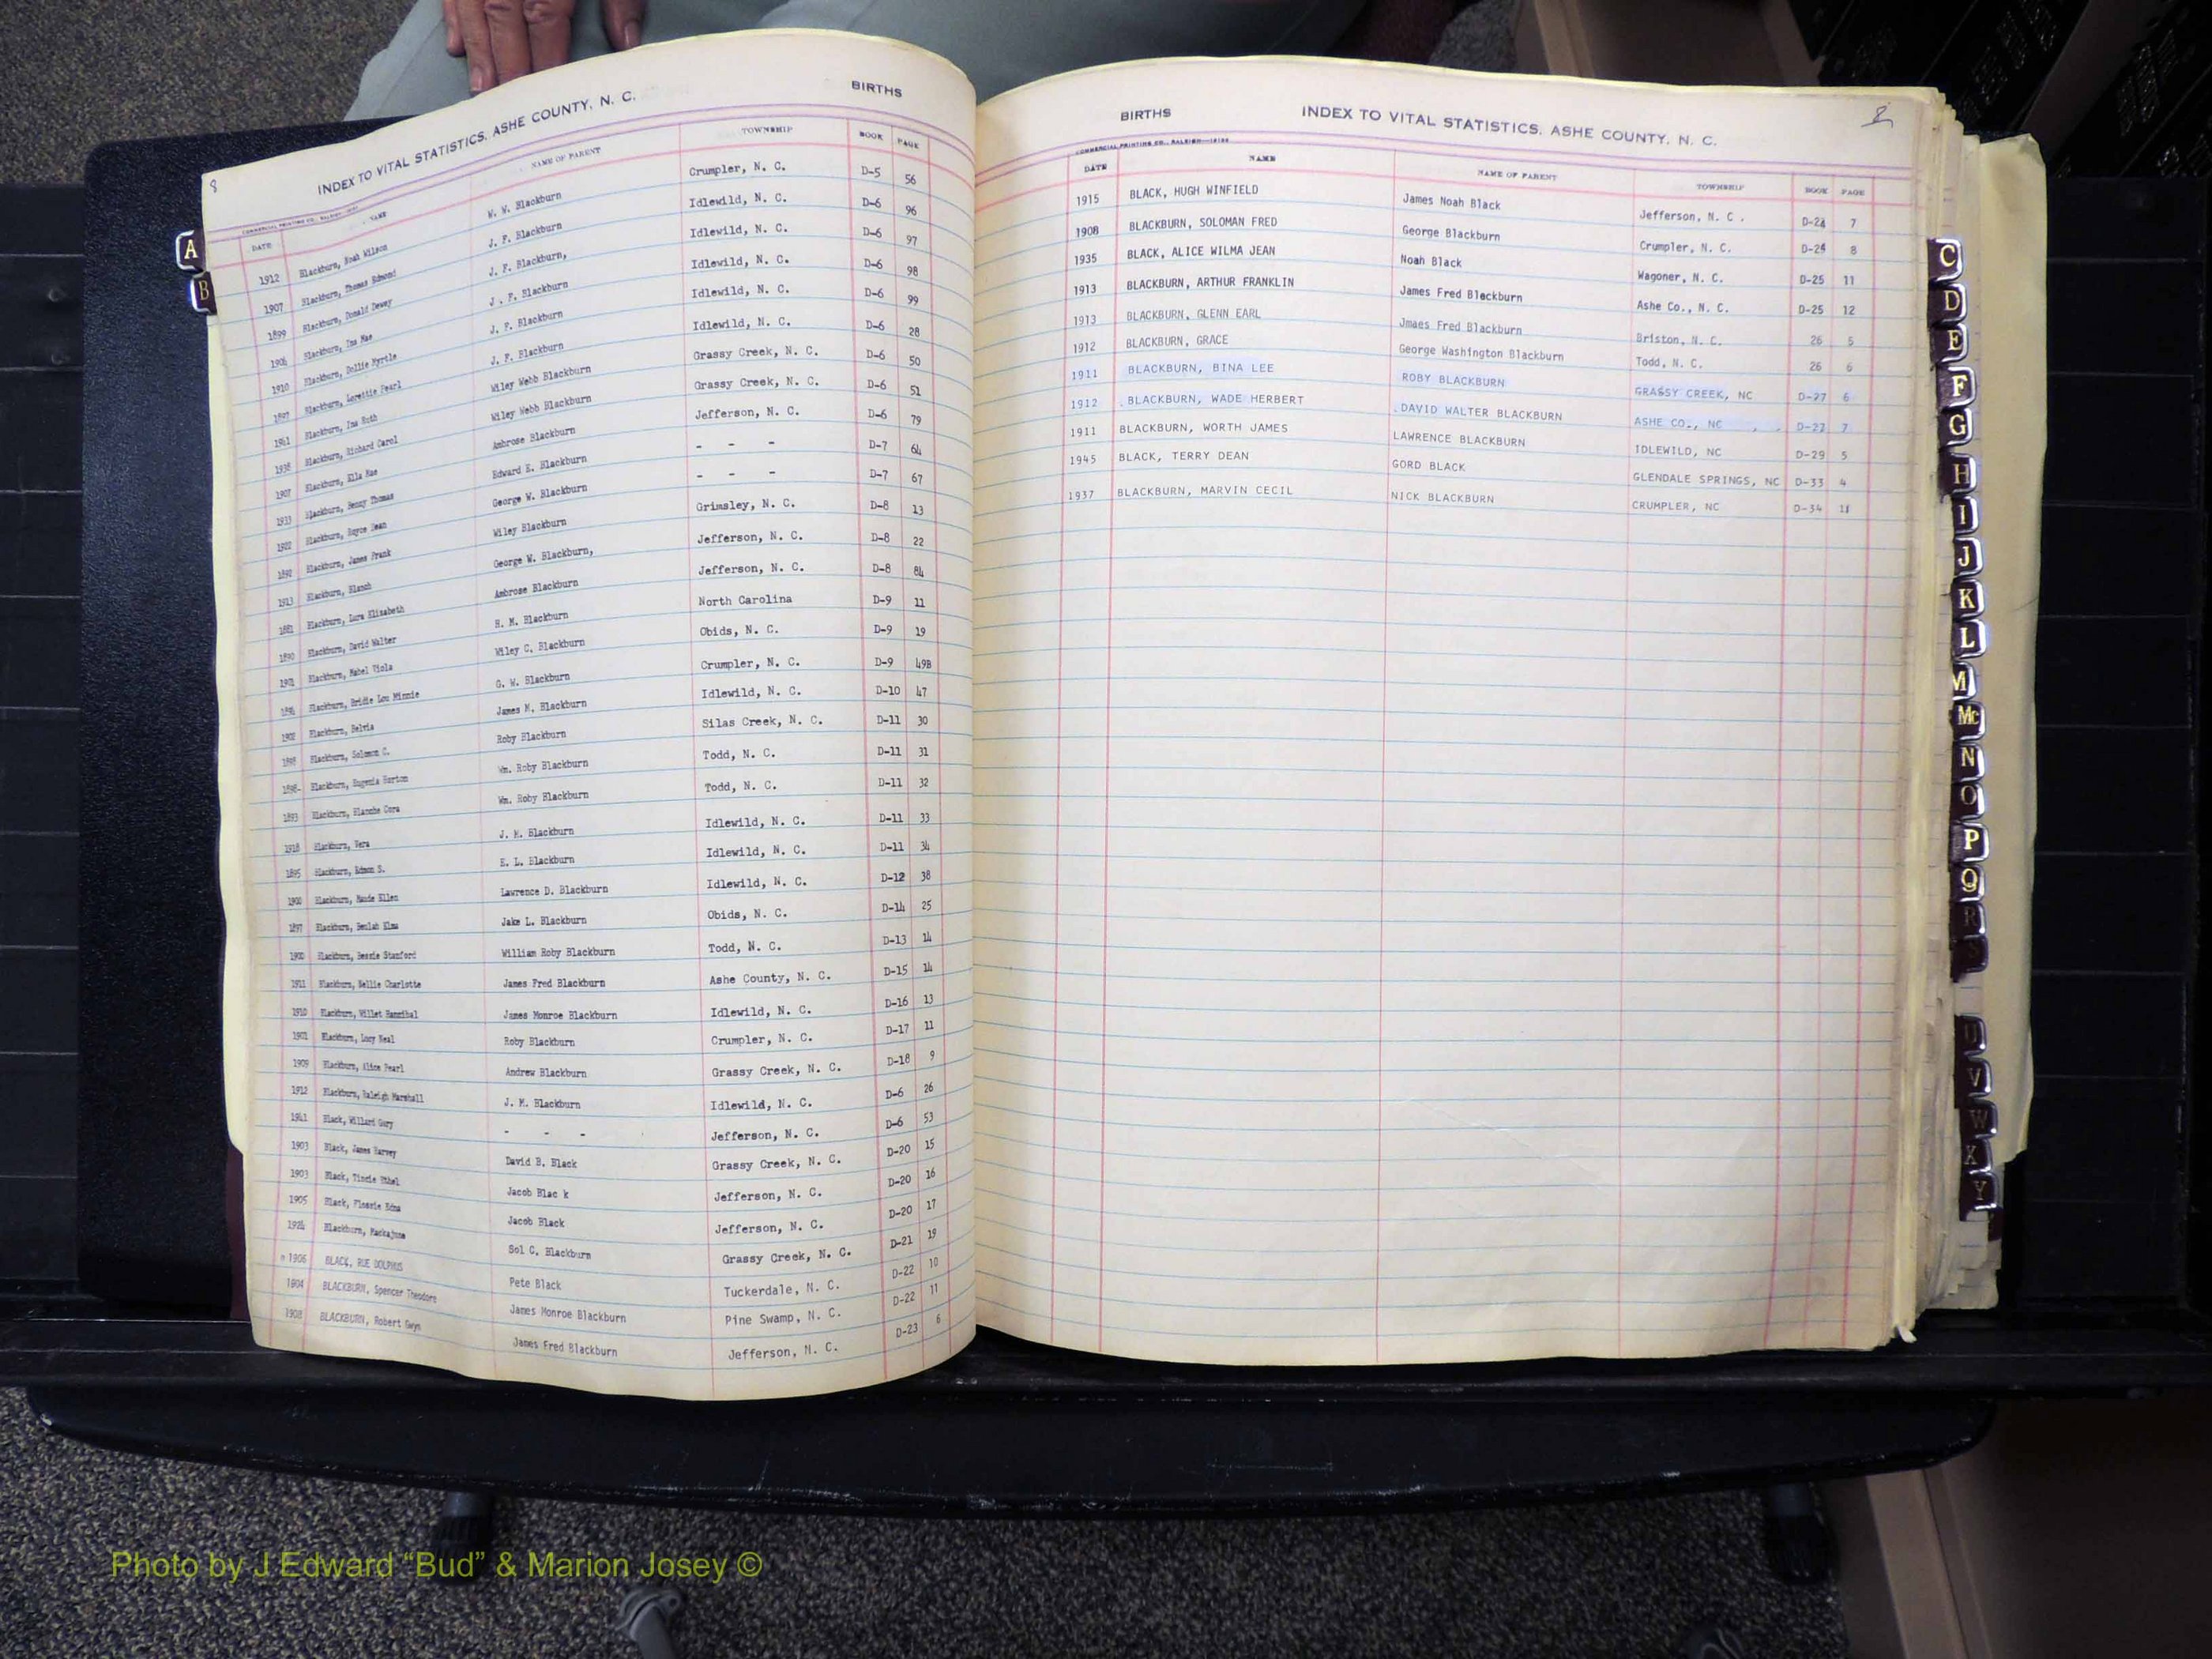 8
INDEX TO VITAL STATISTICS, ASHE COUNTY, N. C.
BIRTHS
DATE NAME NAME OF PARENT TOWNSHIP BOOK PAGE
1912 Blackburn, Noah Wilson W. W. Blackburn Crumpler, N. C. D-5 56
1907 Blackburn, Thomas Edmond J. F. Blackburn Idlewild, N. C. D-6 96
1899 Blackburn, Donald Dewey J. F. Blackburn, Idlewild, N. C. D-6 97
1906 Blackburn, Ina Mae J . F. Blackburn Idlewild, N. C. D-6 98
1910 Blackburn, Dollie Myrtle J. F. Blackburn Idlewild, N. C. D-6 99
1897 Blackburn, Lorettie Pearl J. F. Blackburn Idlewild, N. C. D-6 28
1941 Blackburn, Ina Ruth Wiley Webb Blackburn Grassy Creek, N. C. D-6 50
1938 Blackburn, Richard Carol Wiley Webb Blackburn Grassy Creek, N. C. D-6 51
1907 Blackburn, Ella Mae Ambrose Blackburn Jefferson, N. C. D-6 79
1933 Blackburn, Benny Thomas Edward E. Blackburn - - - D-7 64
1922 Blackburn, Royce Dean George W. Blackburn - - - D-7 67
Blackburn, James Frank Wiley Blackburn Grimsley, N. C. D-8 13
1913 Blackburn, Blanch George W. Blackburn, Jefferson, N. C. D-8 22
Blackburn, Lura Elizabeth Ambrose Blackburn Jefferson, N. C. D-8 84
1890 Blackburn, David Walter H. M. Blackburn North Carolina D-9 11
1901 Blackburn, Mabel Viola Wiley C. Blackburn Obids, N. C. D-9 19
Blackburn, Bridie Lou Minnie G. W. Blackburn Crumpler, N. C. D-9 49B
1902 Blackburn, Belvia James M. Blackburn Idlewild, N. C. D-10 47
1898 Blackburn, Solomon C. Roby Blackburn Silas Creek, N. C. D-11 30
1898- Blackburn, Eugenia Horton Wm. Roby Blackburn Todd, N. C. D-11 31
1893 Blackburn, Blanche Cora Wm. Roby Blackburn Todd, N. C. D-11 32
1918 Blackburn, Vera J. M. Blackburn Idlewild, N. C. D-11 33
1895 Blackburn, Edmon S. E. L. Blackburn Idlewild, N. C. D-11 34
1900 Blackburn, Maude Ellen Lawrence D. Blackburn Idlewild, N. C. D-12 38
1897 Blackburn, Beulah Elma Jake L. Blackburn Obids, N. C. D-14 25
1900 Blackburn, Bessie Stanford William Roby Blackburn Todd, N. C. D-13 14
1911 Blackburn, Nellie Charlotte James Fred Blackburn Ashe County, N. C. D-15 14
1910 Blackburn, Willet Hannibal James Monroe Blackburn Idlewild, N. C. D-16 13
1901 Blackburn, Lucy Neal Roby Blackburn Crumpler, N. C. D-17 11
1909 Blackburn, Alice Pearl Andrew Blackburn Grassy Creek, N. C. D-18 9
1912 Blackburn, Raleigh Marshall J. M. Blackburn Idlewild, N. C. D-6 26
1941 Black, Willard Gary - - - Jefferson, N. C. D-6 53
1903 Black, James Harvey David B. Black Grassy Creek, N. C. D-20 15
1903 Black, Tincie Ethel Jacob Blac k Jefferson, N. C. D-20 16
1905 Black, Flossie Edna Jacob Black Jefferson, N. C. D-20 17
1924 Blackburn, Sol C. Blackburn Grassy Creek, N. C. D-21 19
1906 BLACK, RUE DOLPHUS Pete Black Tuckerdale, N. C. D-22 10
1904 BLACKBURN, Spencer Theodore James Monroe Blackburn Pine Swamp, N. C. D-22 11
1908 BLACKBURN, Robert Gwyn James Fred Blackburn Jefferson, N. C. D-23 6
BIRTHS
INDEX TO VITAL STATISTICS, ASHE COUNTY, N. C.
8
COMMERCIAL PRINTING CO., RALEIGH
DATE NAME NAME OF PARENT TOWNSHIP BOOK PAGE
1915 BLACK, HUGH WINFIELD James Noah Black Jefferson, N. C . D-24 7
1908 BLACKBURN, SOLOMAN FRED George Blackburn Crumpler, N. C. D-24 8
1935 BLACK, ALICE WILMA JEAN Noah Black Wagoner, N. C. D-25 11
1913 BLACKBURN, ARTHUR FRANKLIN James Fred Blackburn Ashe Co., N. C. D-25 12
1913 BLACKBURN, GLENN EARL Jmaes Fred Blackburn Briston, N. C. 26 5
1912 BLACKBURN, GRACE George Washington Blackburn Todd, N. C. 26 6
1911 BLACKBURN, BINA LEE ROBY BLACKBURN GRASSY CREEK, NC D-27 6
1912 BLACKBURN, WADE HERBERT DAVID WALTER BLACKBURN ASHE CO., NC D-27 7
1911 BLACKBURN, WORTH JAMES LAWRENCE BLACKBURN IDLEWILD, NC D-29 5
1945 BLACK, TERRY DEAN GORD BLACK GLENDALE SPRINGS, NC D-33 4
1937 BLACKBURN, MARVIN CECIL NICK BLACKBURN CRUMPLER, NC D-34 11
A
B
C
D
E
F
G
H
I
J
K
L
M
Mc
N
O
P
Q
R
U
V
W
X
Y
Photo by J Edward “Bud” & Marion Josey ©